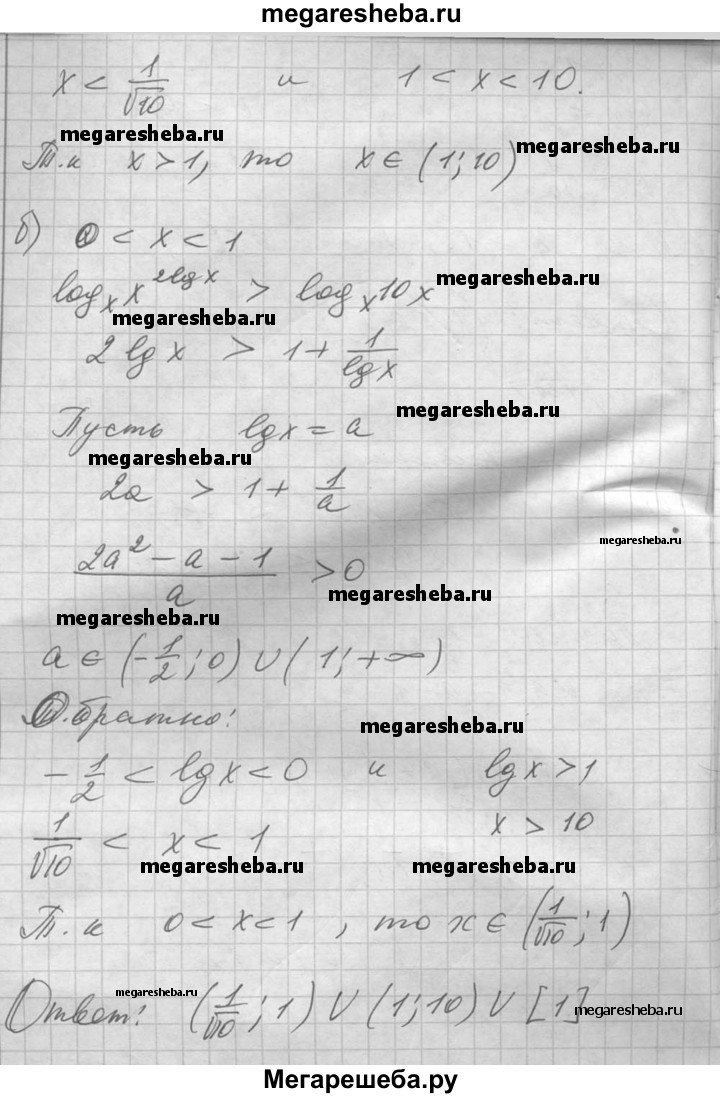 megaresheba.ru
x < 1/√10 и 1 < x < 10.
megaresheba.ru
megaresheba.ru
Т.к x > 1, то x ∈ (1; 10)
б) 0 < x < 1
log_x x^(2lg x) > log_x 10x
megaresheba.ru
megaresheba.ru
2 lg x > 1 + 1/lg x
Пусть lg x = a
megaresheba.ru
megaresheba.ru
2a > 1 + 1/a
megaresheba.ru
(2a² - a - 1)/a > 0
megaresheba.ru
megaresheba.ru
a ∈ (-1/2; 0) ∪ (1; +∞)
Обратно:
megaresheba.ru
-1/2 < lg x < 0 и lg x > 1
1/√10 < x < 1 x > 10
megaresheba.ru
megaresheba.ru
Т.к 0 < x < 1, то x ∈ (1/√10; 1)
megaresheba.ru
megaresheba.ru
Ответ: (1/√10; 1) ∪ (1; 10) ∪ [1]
megaresheba.ru
Мегарешеба.ру